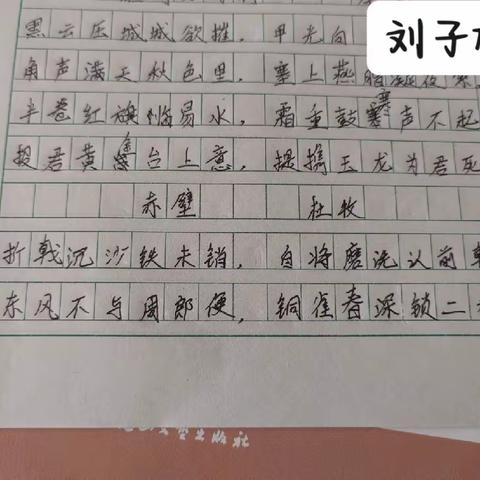 刘子
黑云压城城欲摧，甲光向
角声满天秋色里，塞上燕脂凝夜紫
半卷红旗临易水，霜重鼓寒声不起
报君黄金台上意，提携玉龙为君死
赤壁 杜牧
折戟沉沙铁未销，自将磨洗认前朝
东风不与周郎便，铜雀春深锁二
出版社